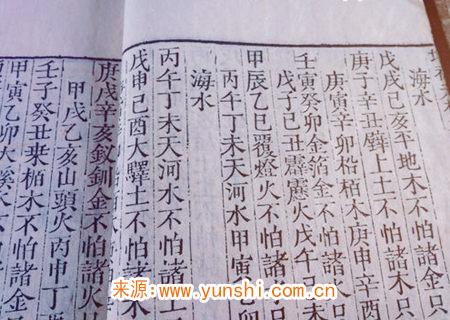 戊戌己亥平地木不怕諸金只
庚子辛丑壁上土不怕諸木只
庚寅辛卯松栢木庚申辛酉
壬寅癸卯金箔金不怕諸火
戊子己丑霹靂火戊午己
甲辰乙巳覆燈火不怕諸
丙午丁未天河水甲寅乙
海水
丙午丁未天河水不怕諸土
戊申己酉大驛土不怕諸
庚戌辛亥釵釧金不怕諸火
甲戌乙亥山頭火丙申丁
壬子癸丑桒柘木不怕諸
甲寅乙卯大溪水不
来源:www.yunshi.com.cn